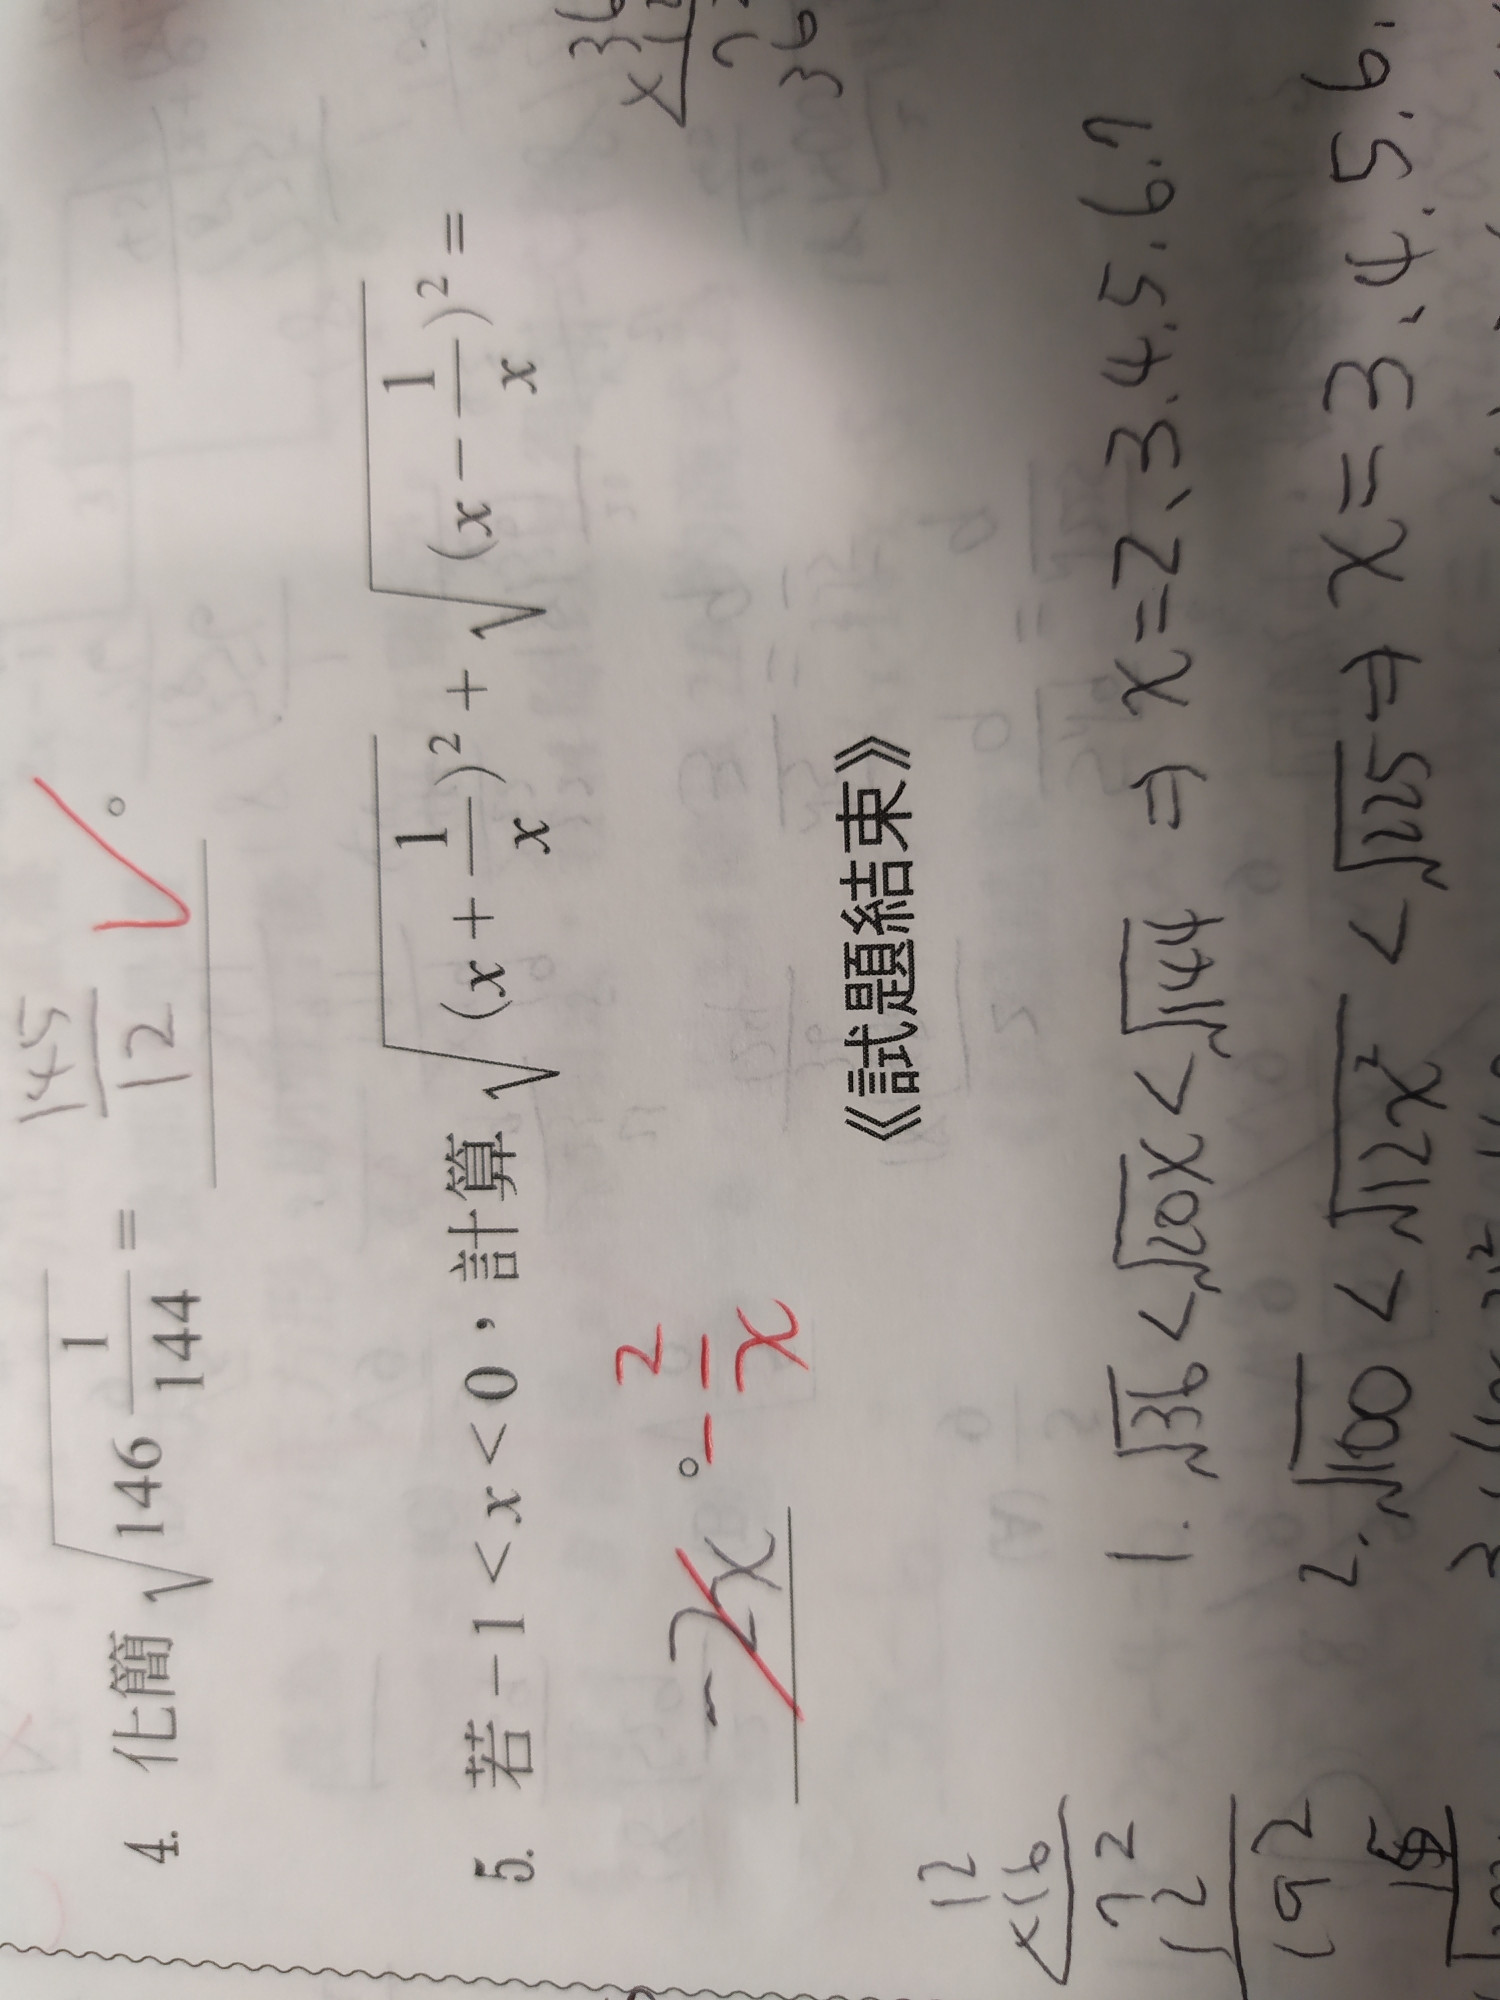 4. 化簡 √146 1/144 = 145/12 。
5. 若 −1 < x < 0，計算 √(x + 1/x)² + √(x − 1/x)² =
−2x 。 −2/x
《試題結束》
1. √36 < √20x < √144 ⇒ x = 2、3.4.5.6.7
2. √100 < √12x² < √225 ⇒ x = 3、4.5.6.
12
×16
72
12
192